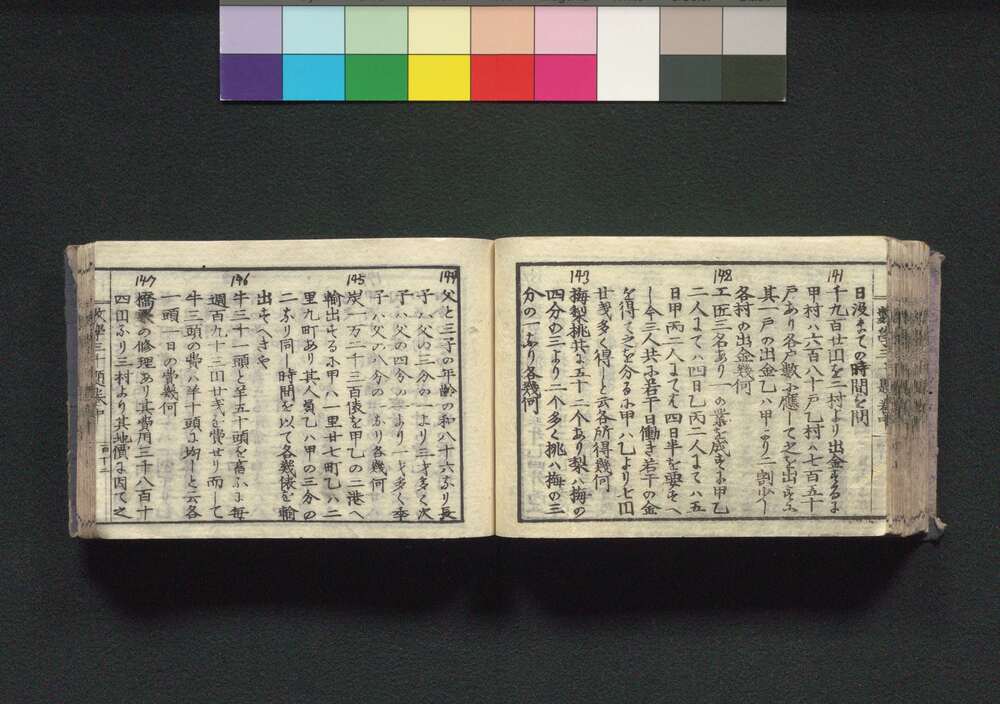 日没までの時間を問
141
千九百廿円を二村より出金するに
甲村ハ六百八十戸乙村ハ七百五十
戸あり各戸數に應して之を出すに
其一戸の出金乙ハ甲より二割少し
各村の出金幾何
142
工匠三名あり一の業を成すに甲乙
二人にてハ四日乙丙二人にてハ五
日甲丙二人にてハ四日半を要すへ
し今三人共に若干日働き若干の金
を得て之を分るに甲ハ乙より七円
廿戔多く得しと云各所得幾何
143
梅梨桃共に五十二個あり梨ハ梅の
四分の三より二個多く桃ハ梅の三
分の一なり各幾何
144
父と三子の年齢の和八十六なり長
子ハ父の三分の一より三才多く次
子ハ父の四分の一より一才多く季
子ハ父の八分の一なり各幾何
145
炭一万二千三百俵を甲乙の二港へ
輸出するに甲ハ一里廿七町乙ハ二
里九町あり其人員乙ハ甲の三分の
二なり同し時間を以て各幾俵を輸
出すへきや
146
牛三十一頭と羊五十頭を畜ふに毎
週百九十三円廿戔を費せり而して
牛三頭の費ハ羊十頭に均しと云各
一頭一日の費幾何
147
橋梁の修理あり其費用三千八百十
四円なり三村より其地價に因て之
數學三千題卷中